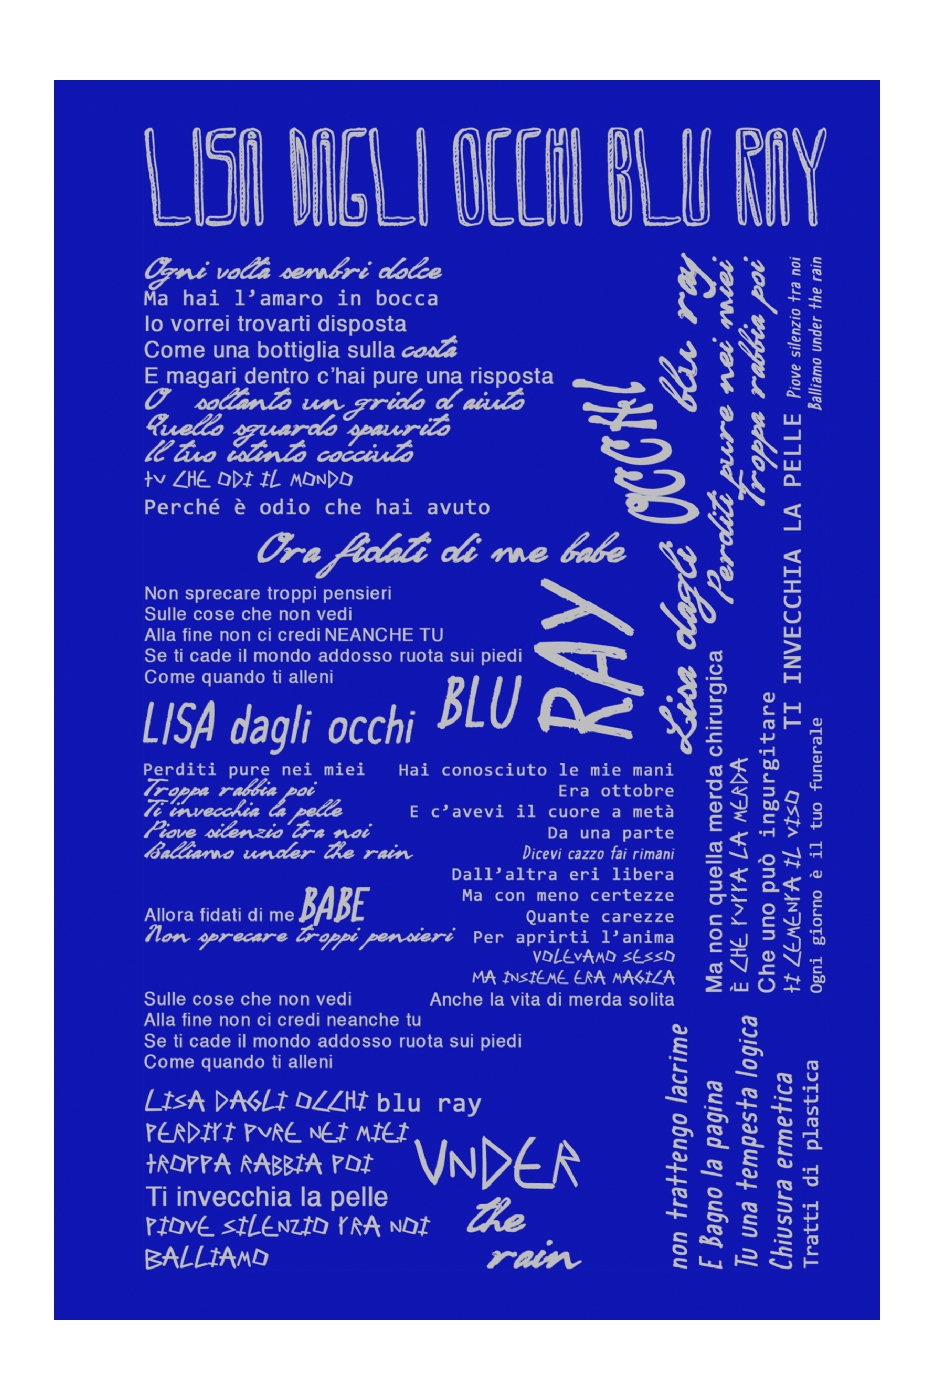 LISA DAGLI OCCHI BLU RAY
Ogni volta sembri dolce
Ma hai l'amaro in bocca
Io vorrei trovarti disposta
Come una bottiglia sulla costa
E magari dentro c'hai pure una risposta
O soltanto un grido d aiuto
Quello sguardo spaurito
Il tuo istinto cocciuto
TU CHE ODI IL MONDO
Perché è odio che hai avuto
Ora fidati di me babe
Non sprecare troppi pensieri
Sulle cose che non vedi
Alla fine non ci credi NEANCHE TU
Se ti cade il mondo addosso ruota sui piedi
Come quando ti alleni
LISA dagli occhi BLU
RAY
Perditi pure nei miei
Troppa rabbia poi
Ti invecchia la pelle
Piove silenzio tra noi
Balliamo under the rain
Allora fidati di me BABE
Non sprecare troppi pensieri
Sulle cose che non vedi
Alla fine non ci credi neanche tu
Se ti cade il mondo addosso ruota sui piedi
Come quando ti alleni
Hai conosciuto le mie mani
Era ottobre
E c'avevi il cuore a metà
Da una parte
Dicevi cazzo fai rimani
Dall'altra eri libera
Ma con meno certezze
Quante carezze
Per aprirti l'anima
VOLEVAMO SESSO
MA INSIEME ERA MAGICA
Anche la vita di merda solita
LISA DAGLI OCCHI blu ray
PERDITI PURE NEI MIEI
TROPPA RABBIA POI
Ti invecchia la pelle
PIOVE SILENZIO TRA NOI
BALLIAMO
UNDER
the
rain
non trattengo lacrime
E Bagno la pagina
Tu una tempesta logica
Chiusura ermetica
Tratti di plastica
Ma non quella merda chirurgica
È CHE TUTTA LA MERDA
Che uno può ingurgitare
TI CEMENTA IL VISO
Ogni giorno è il tuo funerale
Lisa dagli OCCHI blu ray
Perditi pure nei miei
Troppa rabbia poi
TI INVECCHIA LA PELLE
Piove silenzio tra noi
Balliamo under the rain